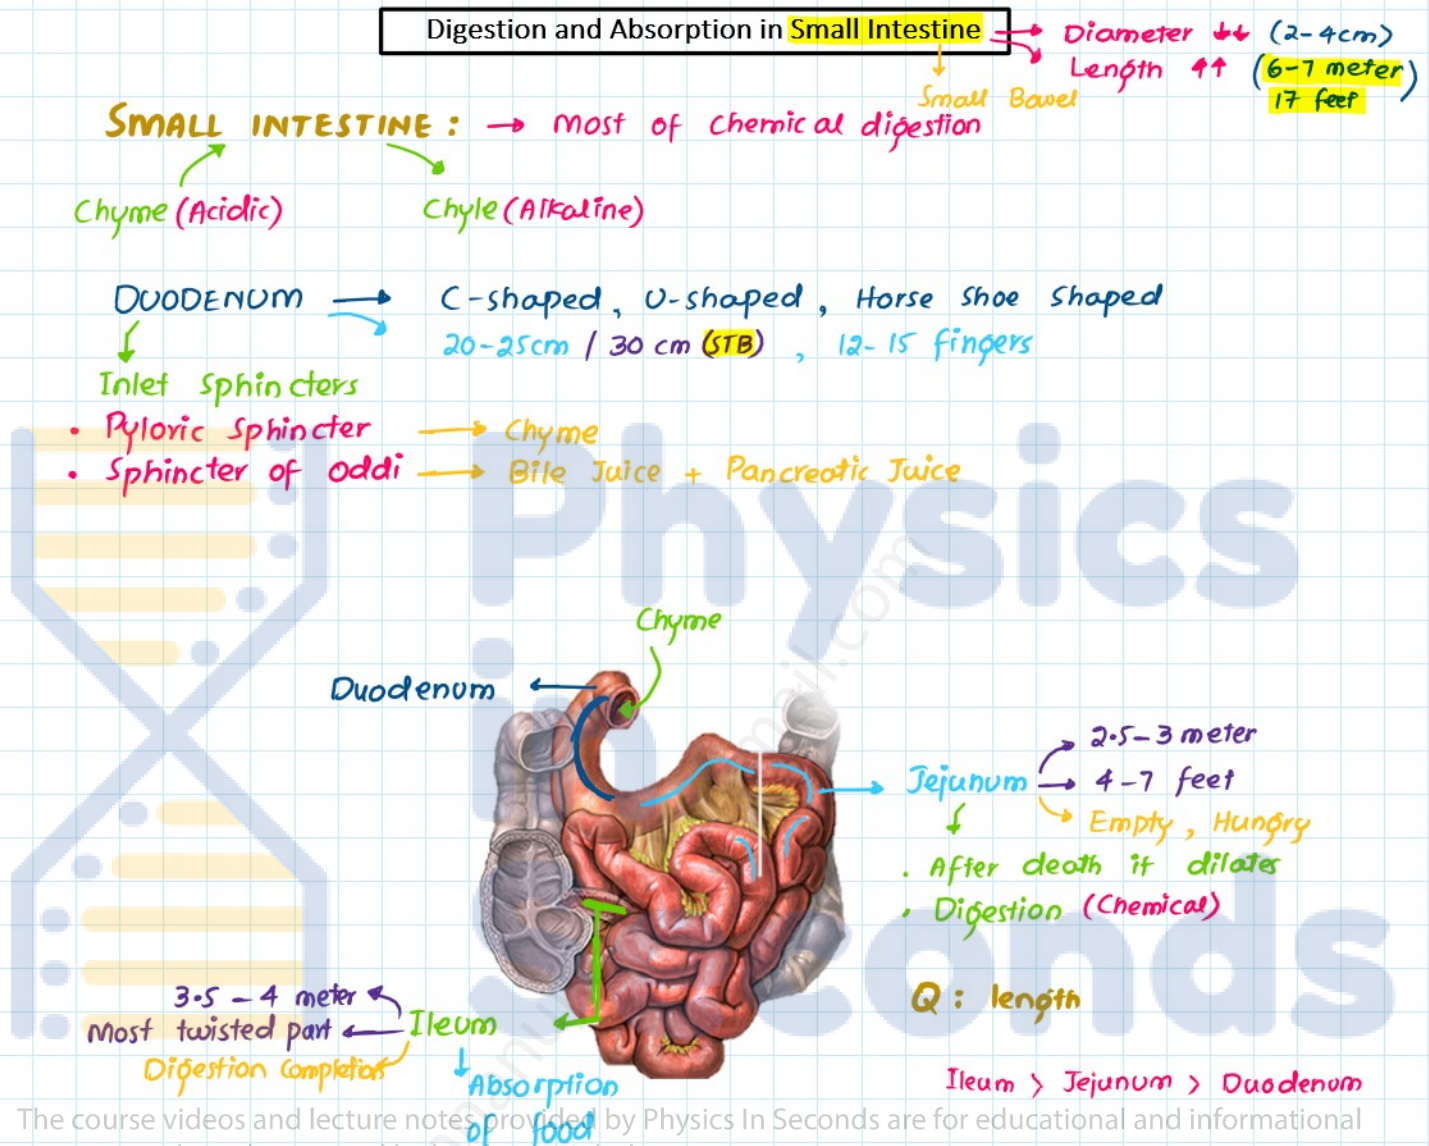 Digestion and Absorption in Small Intestine
Diameter ↓↓ (2-4cm)
Length ↑↑ (6-7 meter)
17 feet
Small Bowel
SMALL INTESTINE: → Most of chemical digestion
Chyme (Acidic)
Chyle (Alkaline)
DUODENUM → C-shaped, U-shaped, Horse Shoe Shaped
20-25cm / 30 cm (STB) , 12-15 fingers
Inlet Sphincters
• Pyloric Sphincter → Chyme
• Sphincter of Oddi → Bile Juice + Pancreatic Juice
Physics
in
Seconds
Chyme
Duodenum
Jejunum
2.5-3 meter
4-7 feet
Empty, Hungry
• After death it dilates
• Digestion (Chemical)
3.5 - 4 meter
Most twisted part
Ileum
Digestion Completion
Absorption
of food
Q: length
Ileum > Jejunum > Duodenum
The course videos and lecture notes provided by Physics In Seconds are for educational and informational